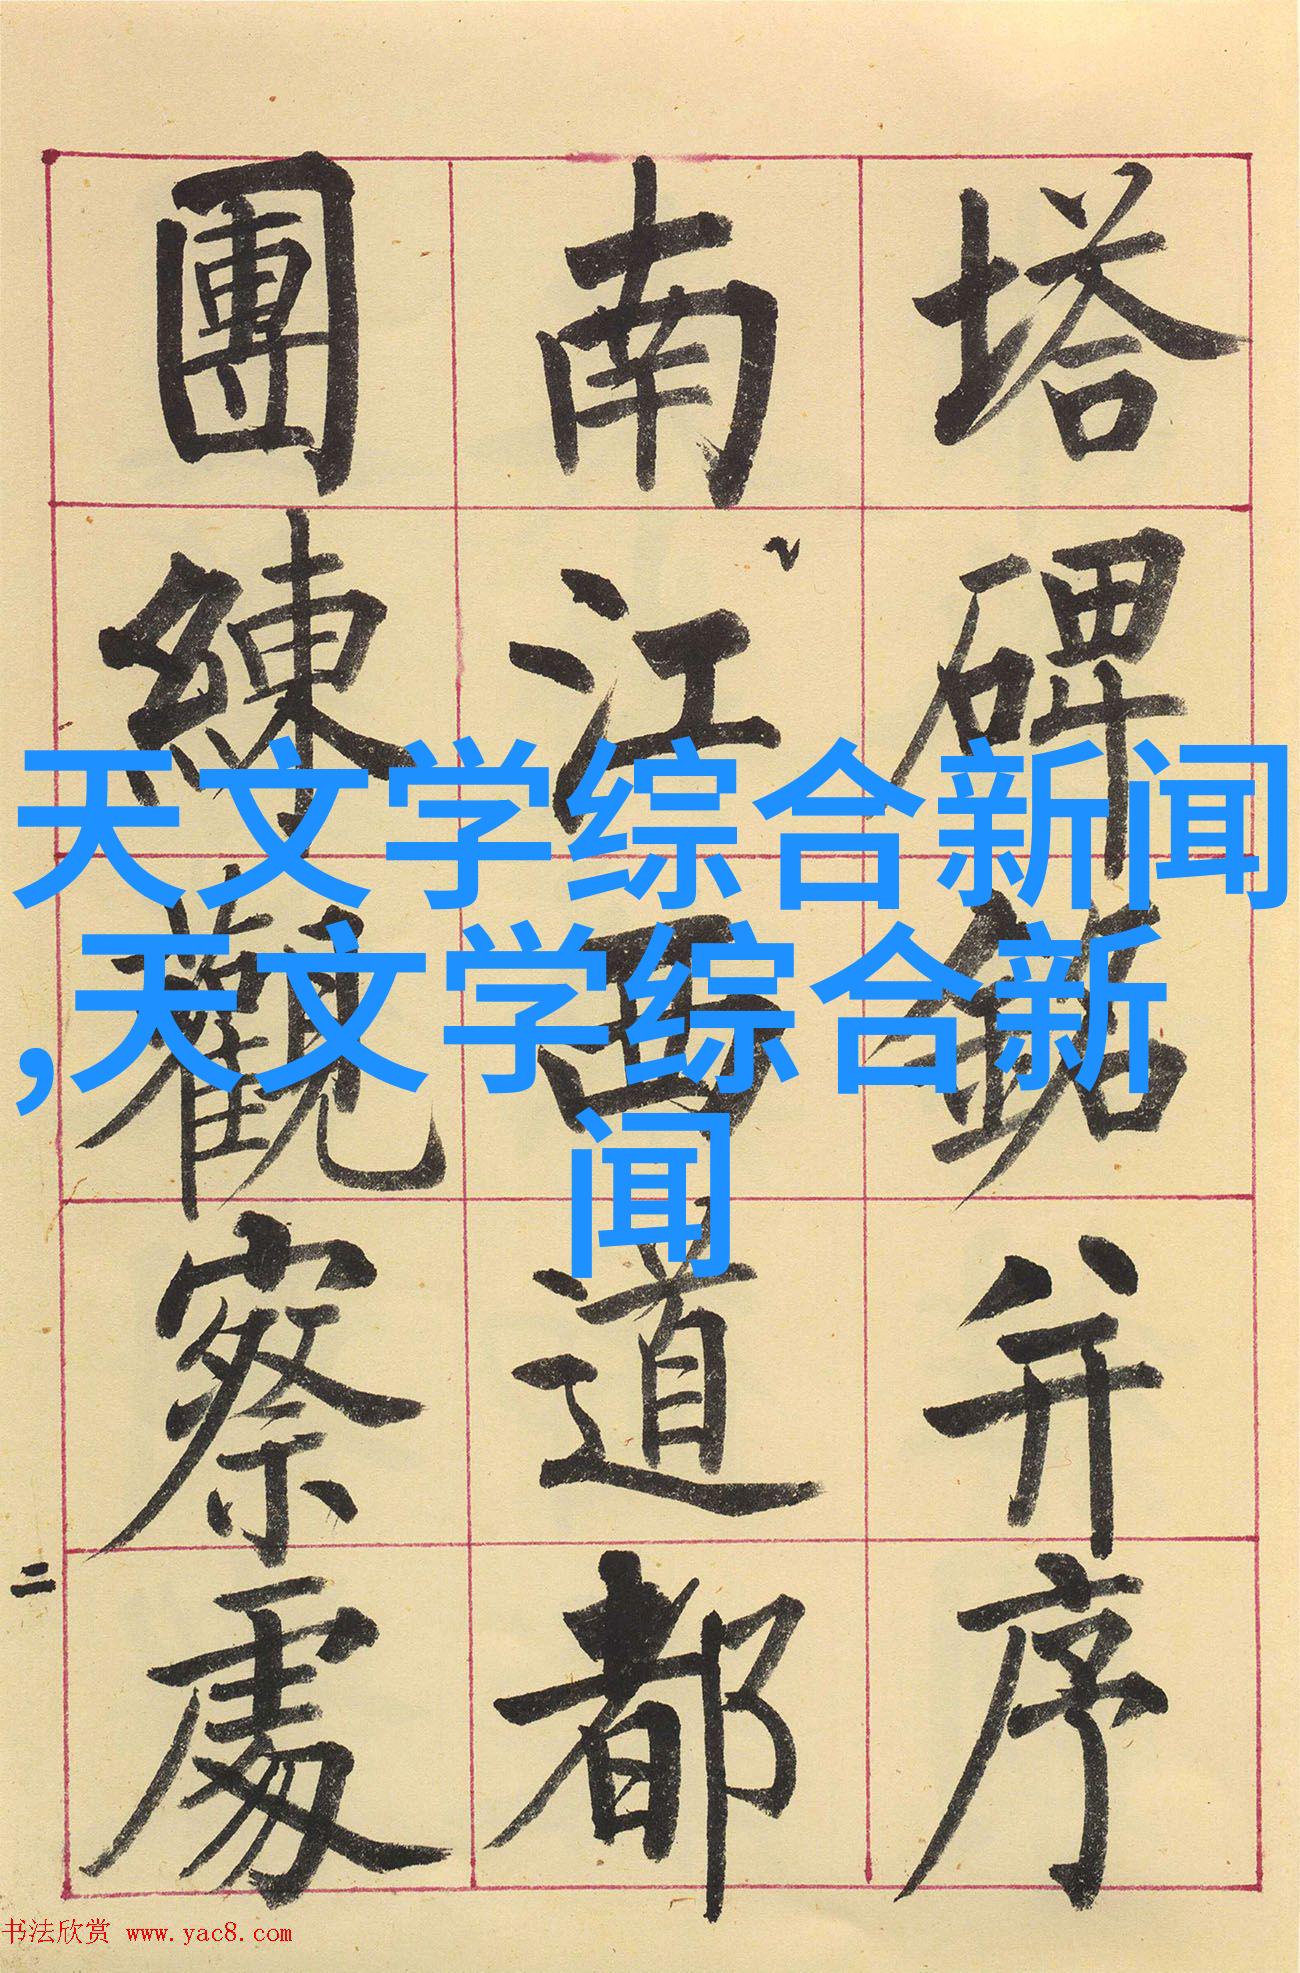 塔碑銘并序
南江西道都
團練觀察處
二
天文学综合新闻
,天文学综合新
闻
书法欣赏 www.yac8.com